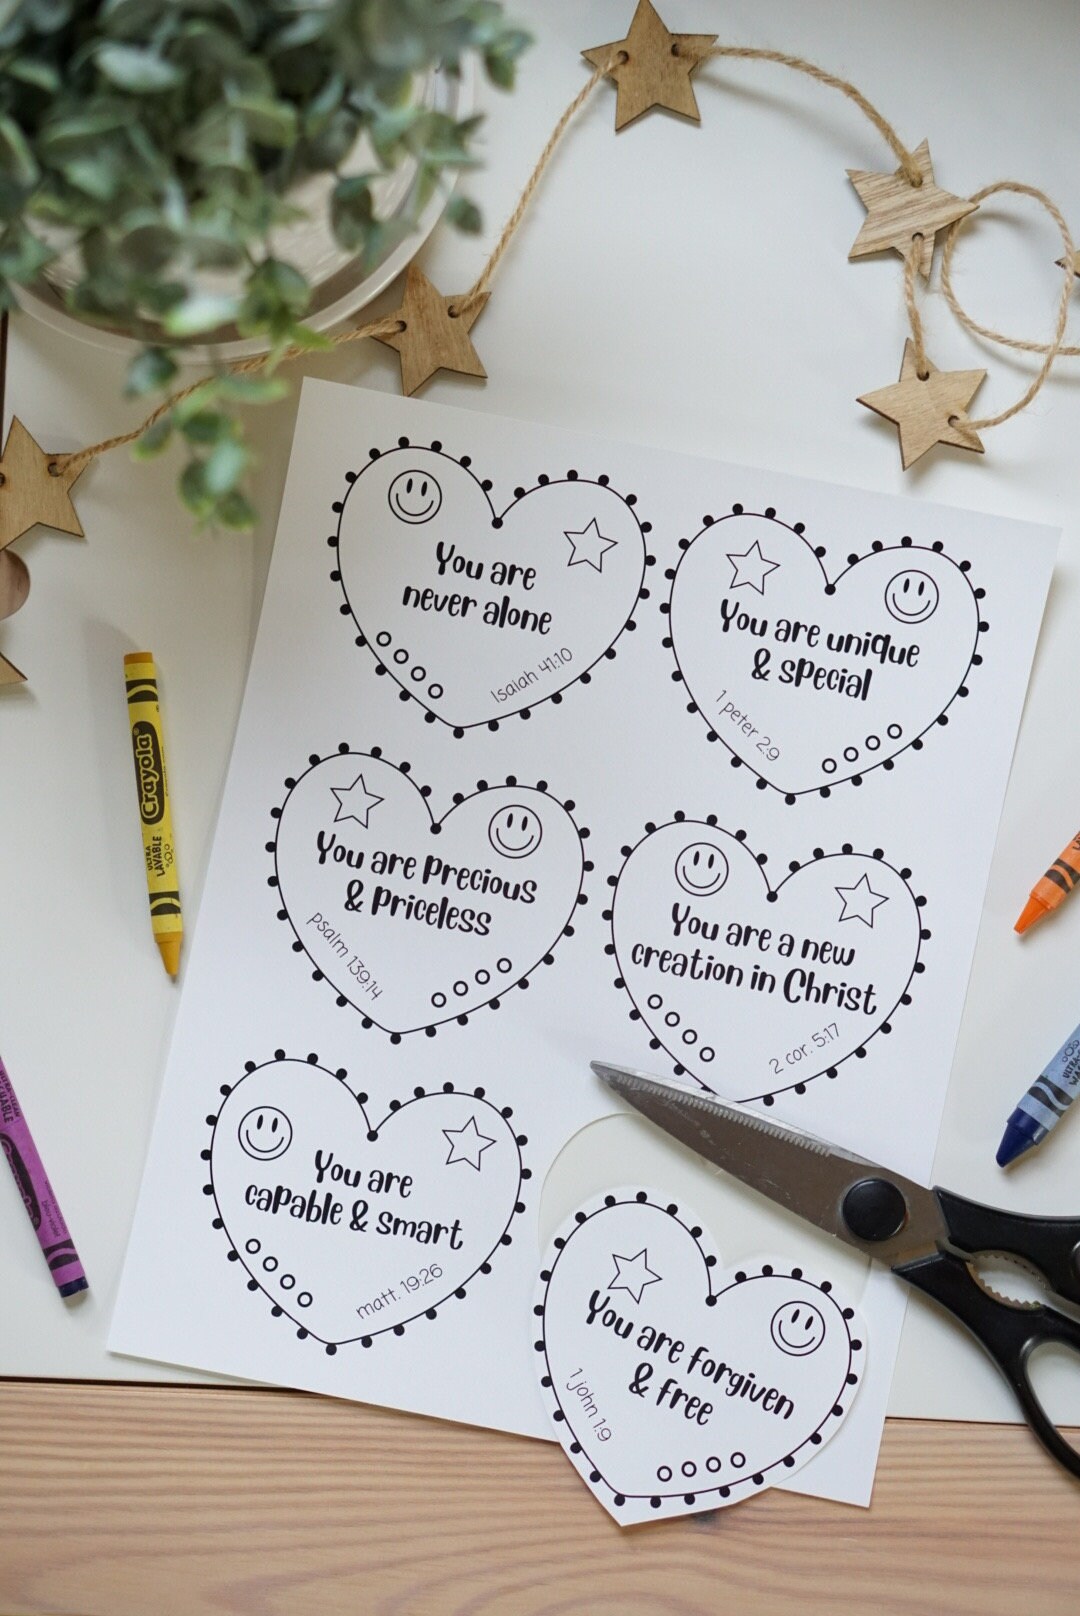 You are
never alone
Isaiah 41:10
You are unique
& special
1 peter 2:9
You are Precious
& Priceless
psalm 139:14
You are a new
creation in Christ
2 cor. 5:17
You are
capable & smart
matt. 19:26
You are Forgiven
& Free
1 john 1:9
Crayola
ULTRA